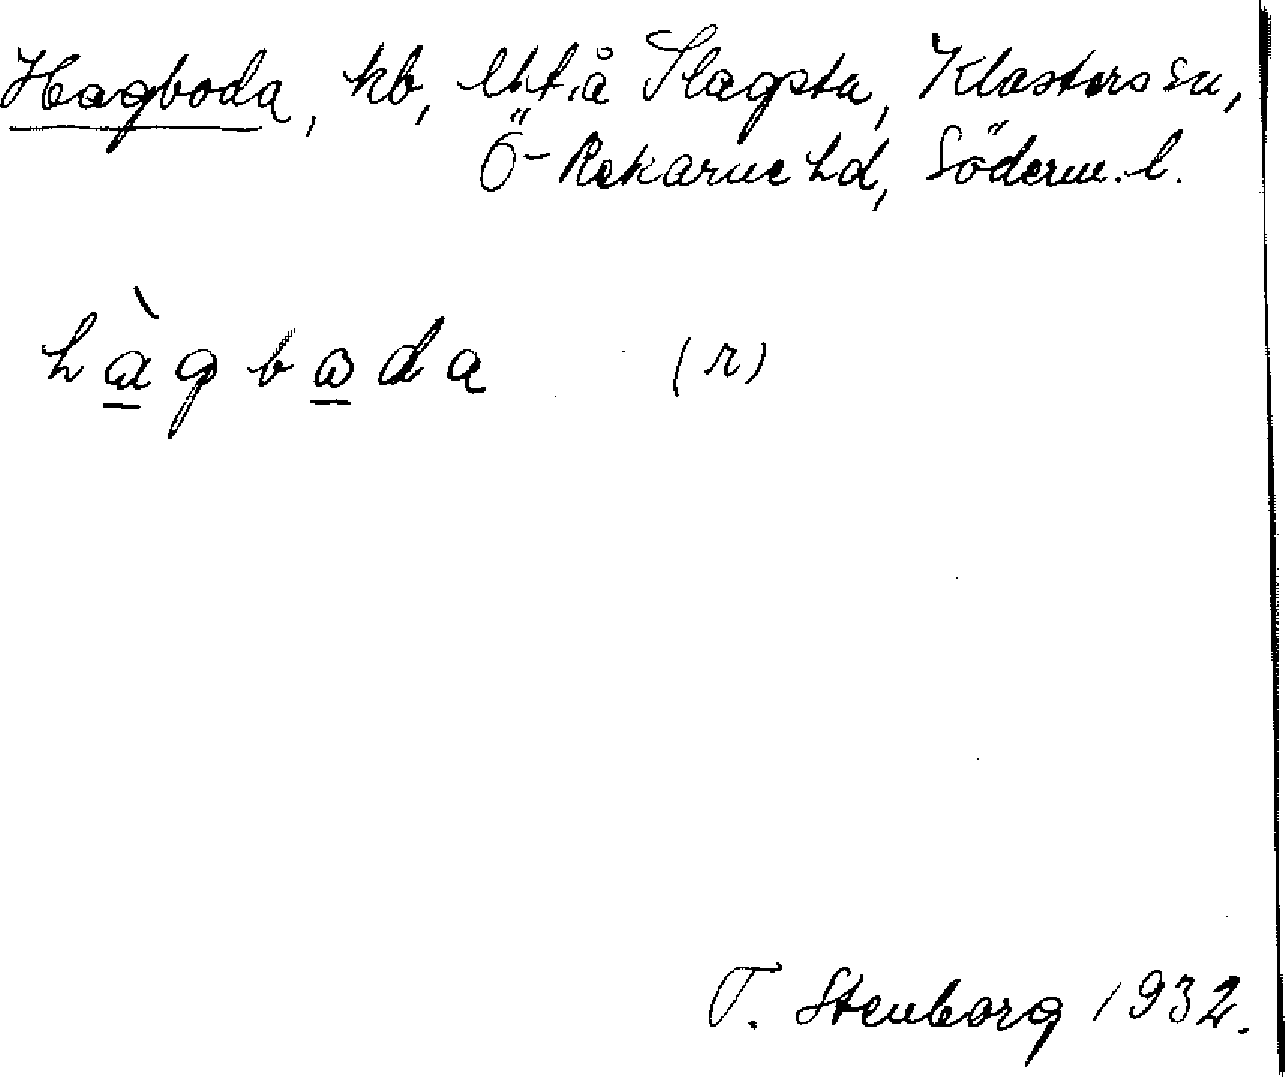 Hagboda, hb, lht. å Slagsta, Klosters sn,
Ö-Rekarne hd, Söderm. l.
hàgboda (r)
T. Stenborg 1932.